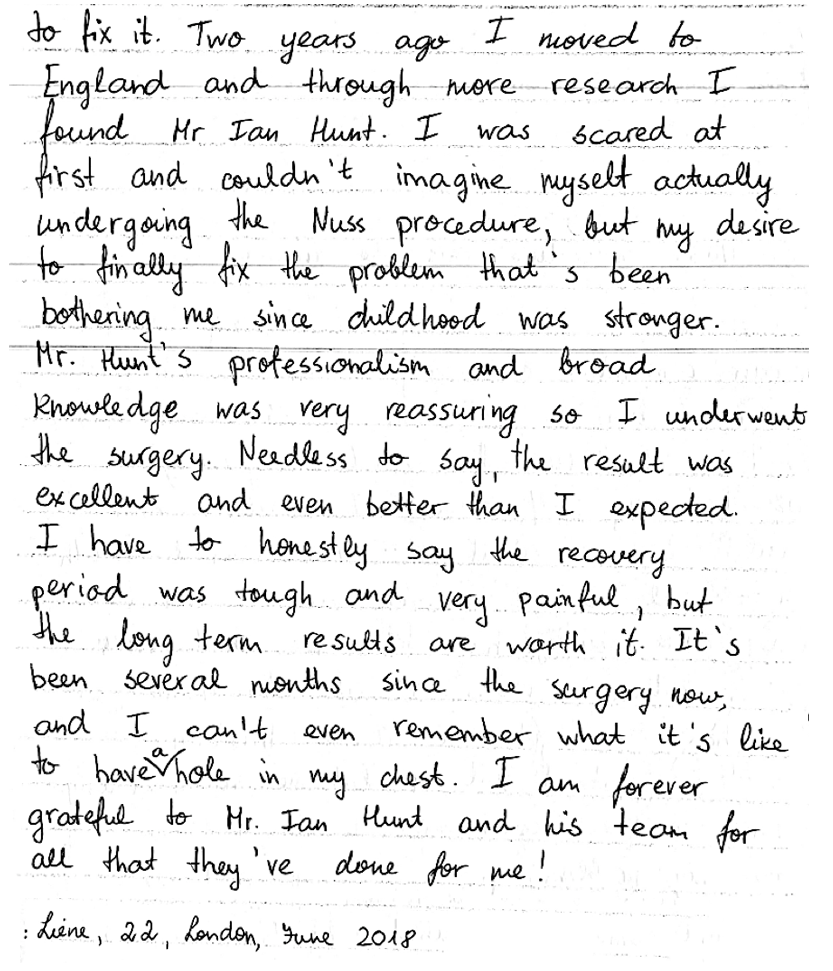 to fix it. Two years ago I moved to
England and through more research I
found Mr Ian Hunt. I was scared at
first and couldn't imagine myself actually
undergoing the Nuss procedure, but my desire
to finally fix the problem that's been
bothering me since childhood was stronger.
Mr. Hunt's professionalism and broad
knowledge was very reassuring so I underwent
the surgery. Needless to say, the result was
excellent and even better than I expected.
I have to honestly say the recovery
period was tough and very painful, but
the long term results are worth it. It's
been several months since the surgery now,
and I can't even remember what it's like
to have a hole in my chest. I am forever
grateful to Mr. Ian Hunt and his team for
all that they've done for me!
: Liene, 22, London, June 2018